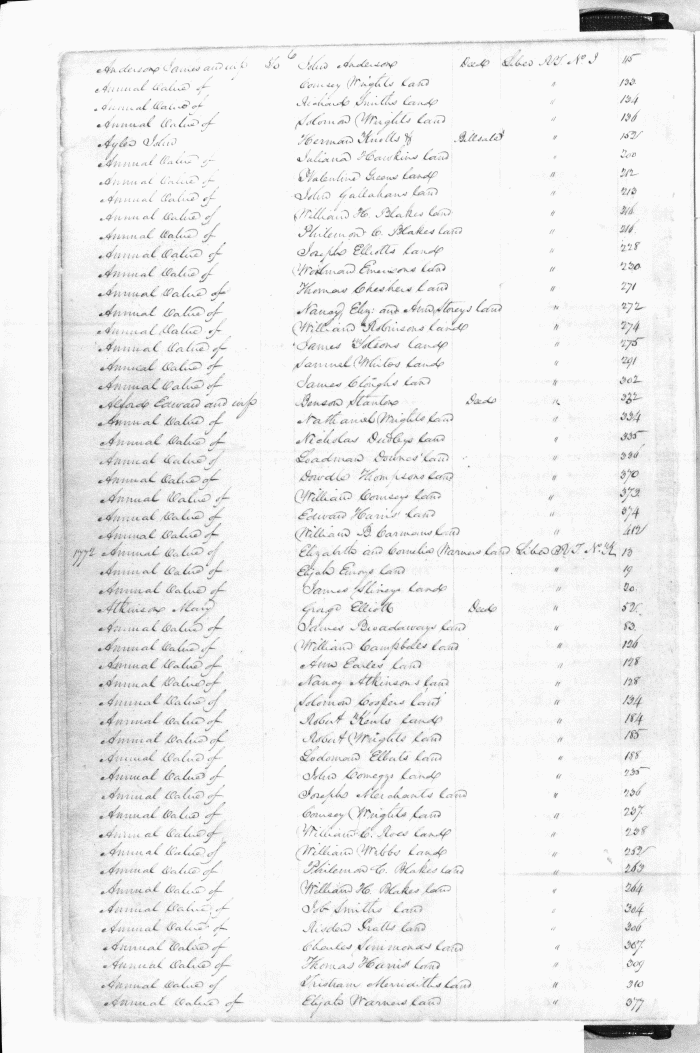 Anderson James and wife to John Anderson Deed Liber R.T. No. I 115
Annual Value of Coursey Wrights land " 133
Annual Value of Richard Smiths land " 134
Annual Value of Solomon Wrights land " 136
Ayler John Herman Knotts & Bill sale " 152
Annual Value of Juliana Hawkins land " 200
Annual Value of Valentine Greens land " 212
Annual Value of John Gallahans land " 213
Annual Value of William H. Blakes land " 216
Annual Value of Philemon C. Blakes land " 216
Annual Value of Joseph Elliotts land " 228
Annual Value of Woolman Emersons land " 230
Annual Value of Thomas Cheshers land " 271
Annual Value of Nancy, Eliz: and Ann Storeys land " 272
Annual Value of William Robinsons land " 274
Annual Value of James Tolsons land " 275
Annual Value of Samuel Whites land " 291
Annual Value of James Cloughs land " 302
Alford Edward and wife Benson Stanton Deed " 322
Annual Value of Nathaniel Wrights land " 334
Annual Value of Nicholas Dudleys land " 335
Annual Value of Loadman Downes' land " 336
Annual Value of Dowdle Thompsons land " 370
Annual Value of William Courseys land " 373
Annual Value of Edward Harris' land " 374
Annual Value of William B. Carmans land " 412
1772 Annual Value of Elizabeth and Cornelia Warners land Liber R.T. No. K 13
Annual Value of Elijah Emorys land " 19
Annual Value of James land " 20
Atkinson Mary George Elliott Deed " 52
Annual Value of James Broadaways land " 83
Annual Value of William Campbells land " 126
Annual Value of Ann Earles' land " 128
Annual Value of Nancy Atkinsons land " 128
Annual Value of Solomon Coopers land " 134
Annual Value of Robert Kents land " 184
Annual Value of Robert Wrights land " 185
Annual Value of Lodoman Elberts land " 188
Annual Value of John Comegys land " 235
Annual Value of Joseph Merchants land " 236
Annual Value of Coursey Wrights land " 237
Annual Value of William C. Roes land " 238
Annual Value of William Webbs land " 252
Annual Value of Philemon C. Blakes land " 263
Annual Value of William H. Blakes land " 264
Annual Value of Job Smiths land " 304
Annual Value of Risdon land " 306
Annual Value of Charles Simmonds land " 307
Annual Value of Thomas Harris' land " 309
Annual Value of Tristram Merridiths land " 310
Annual Value of Elijah Warners land " 377